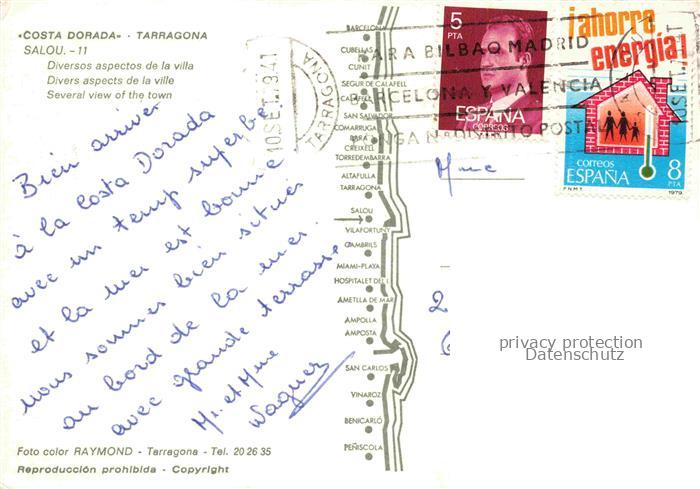 «COSTA DORADA» - TARRAGONA
SALOU. - 11
Diversos aspectos de la villa
Divers aspects de la ville
Several view of the town
Bien arriver
à la Costa Dorada
avec un temp superbe
et la mer est bonne
nous sommes bien situés
au bord de la mer
avec grande terrasse
Mr. et Mme
Wagner
Foto color RAYMOND - Tarragona - Tel. 20 26 35
Reproducción prohibida - Copyright
BARCELONA
CUBELLAS
CUNIT
SEGUR DE CALAFELL
CALAFELL
SAN SALVADOR
COMARRUGA
BARA
CREIXELL
TORREDEMBARRA
ALTAFULLA
TARRAGONA
SALOU
VILAFORTUNY
CAMBRILS
MIAMI-PLAYA
HOSPITALET DEL I.
AMETLLA DE MAR
AMPOLLA
AMPOSTA
SAN CARLOS
VINAROZ
BENICARLÓ
PEÑISCOLA
10 SET. 1979
TARRAGONA
PARA BILBAO MADRID
BARCELONA Y VALENCIA
PONGA Nº DISTRITO POSTAL
5
PTA
ESPAÑA
CORREOS
¡ahorra
energía!
CORREOS
ESPAÑA
8
PTA
F.N.M.T.
1979
Mme
2
6
privacy protection
Datenschutz